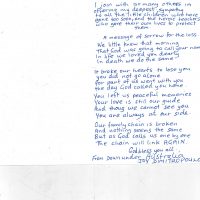 I join with so many others in
offering my deepest sympathy
to all the little children who were
gone too soon, and the heroic teachers
who gave their own lives to protect
them
A message of sorrow for the loss
We little knew that morning
That God was going to call your name
In life we loved you dearly
In death we do the same
It broke our hearts to lose you
you did not go alone
for part of us went with you
the day God called you home
You left us peaceful memories
Your love is still our guide
And though we cannot see you
You are always at our side
Our family chain is broken
and nothing seems the same
But as God calls us one by one
The chain will link AGAIN
God bless you all
From Down under Australia